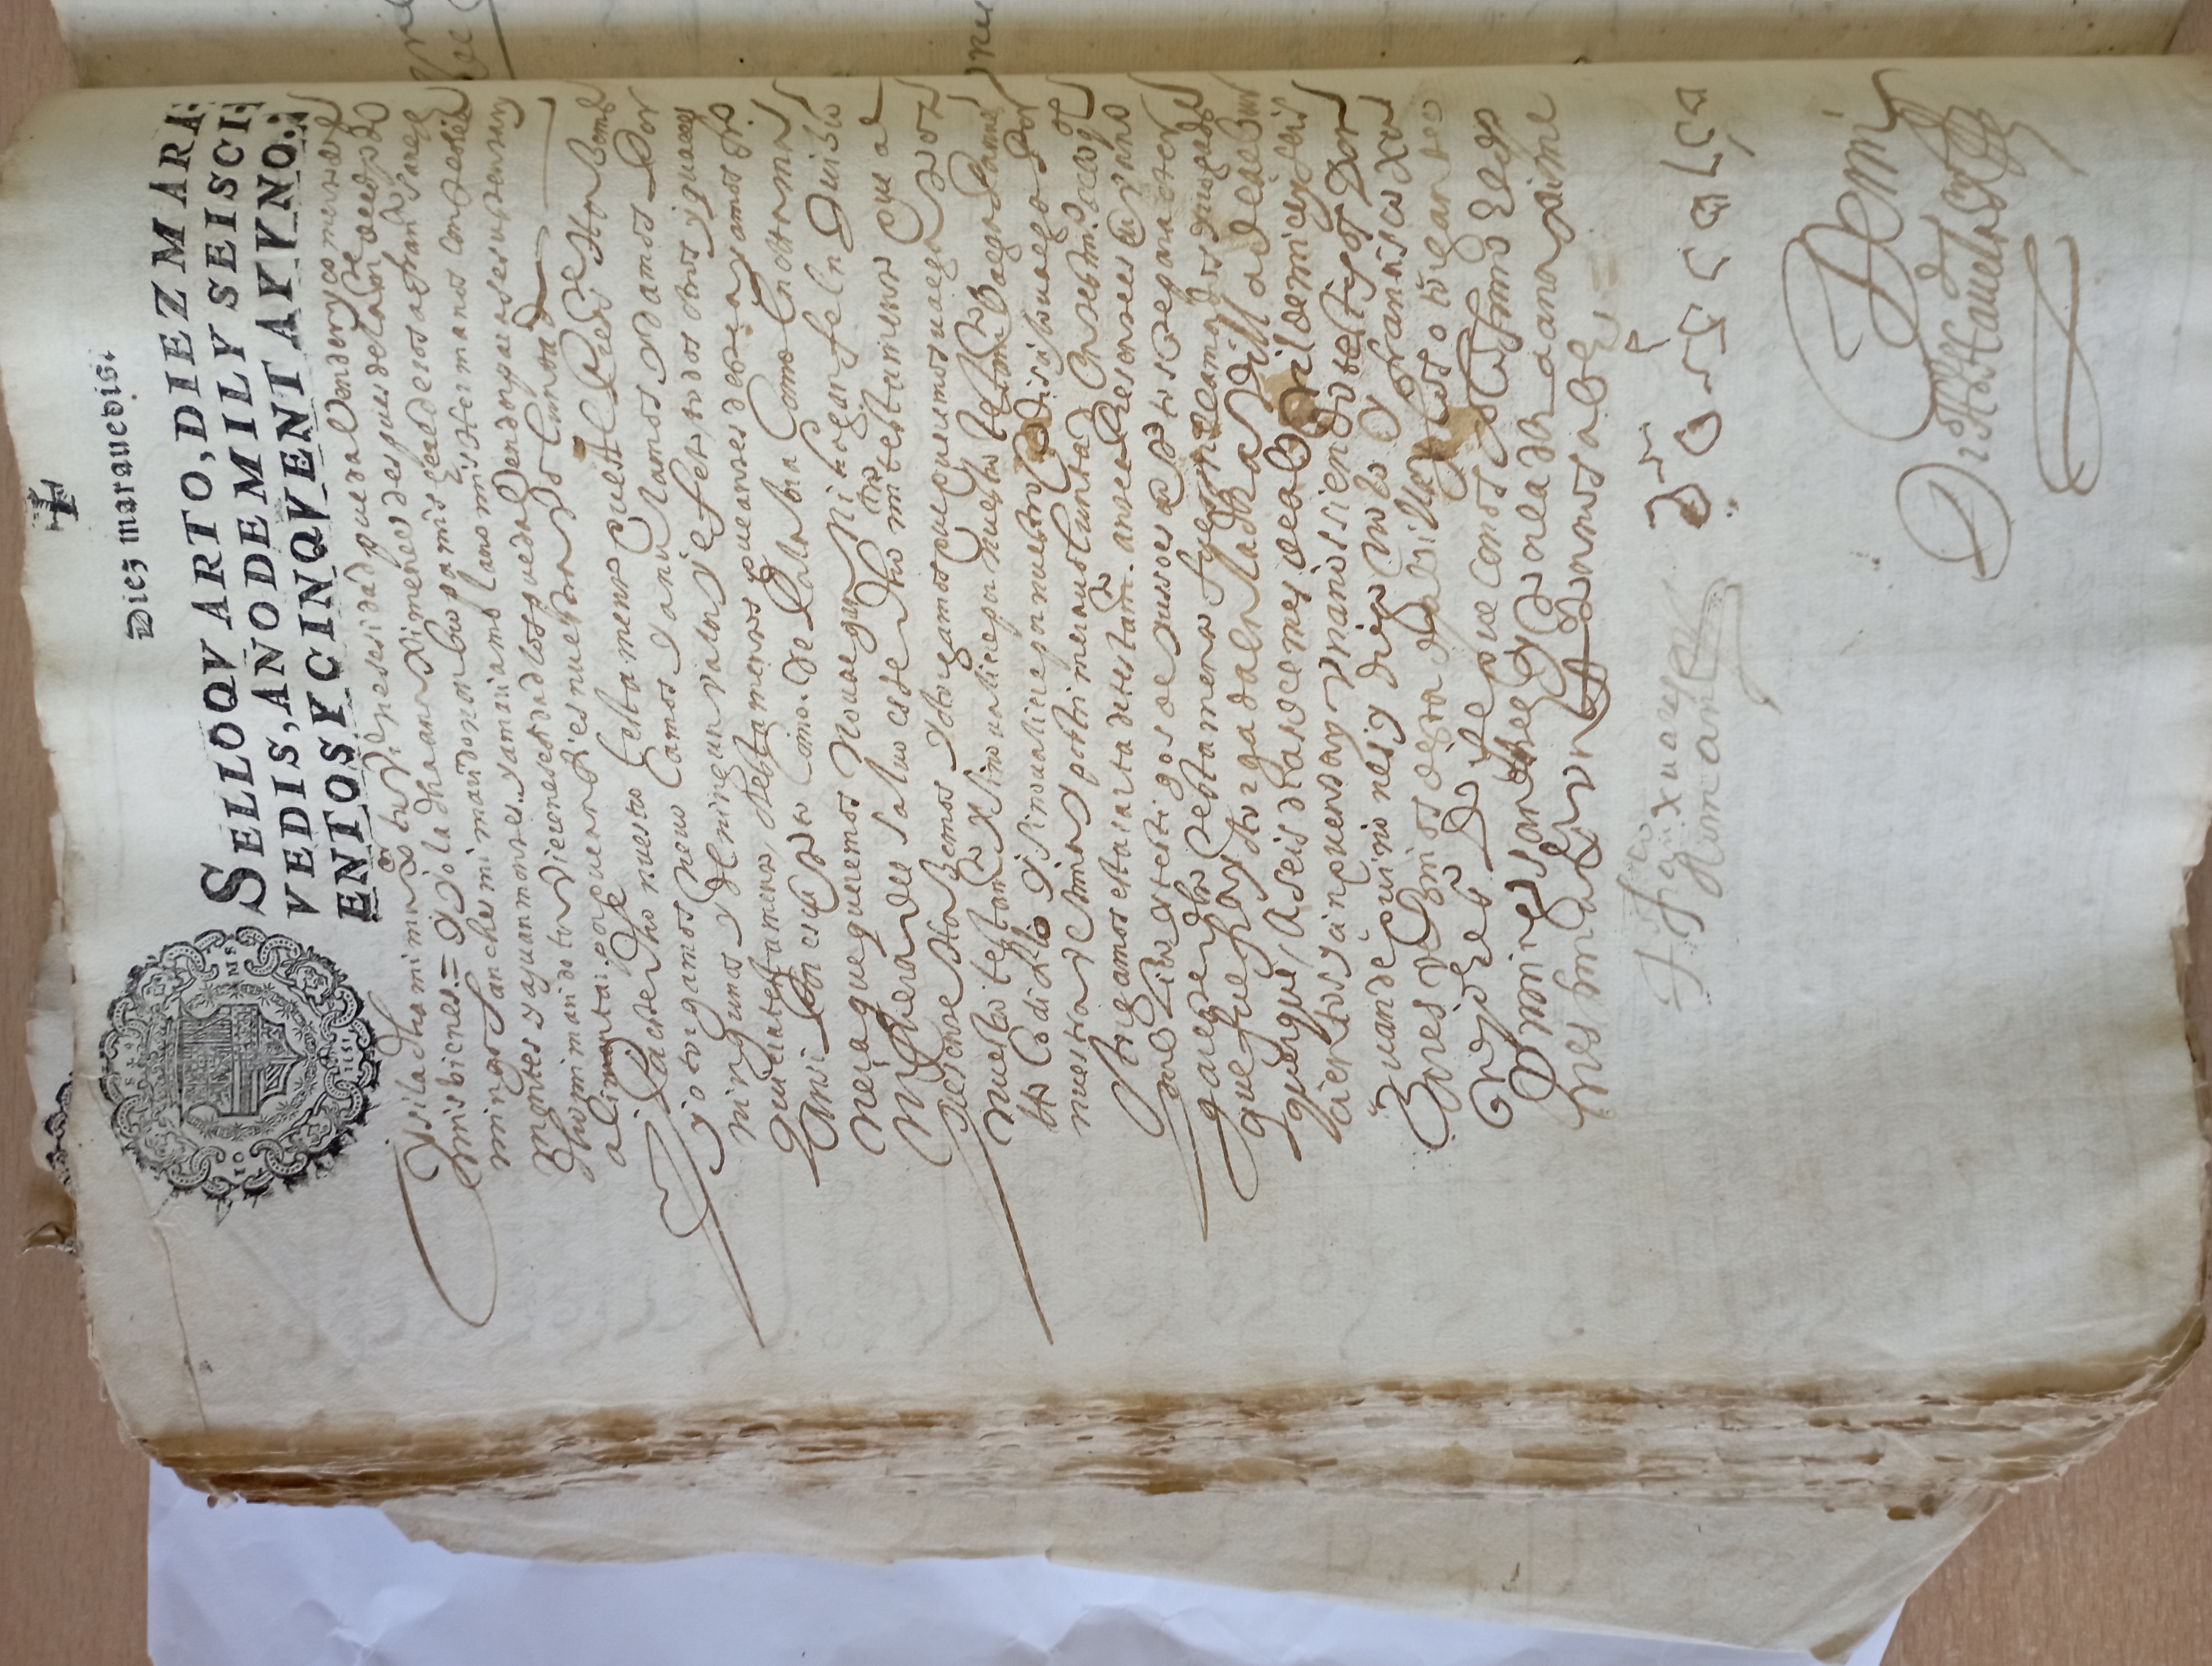 Diez marauedis.
SELLO QVARTO, DIEZ MARA-
VEDIS, AÑO DE MIL Y SEISCI-
ENTOS Y CINQVENTA Y VNO.
1651
y si la dha mi muxer tu nesesidad pueda Vender y comer de
mis bienes = y yo la dha ana Ximenes despues de la me del dho
mingo Sanches mi marido nonbro pa mis herederos a franco Sares
montes y a juan montes y a maria mis Hermanos con
dho mi marido tuViere nesesidad los pueda Vender para se sustentar y
alimentar porque ansi es nuestra Voluntad
y este dho nuestro testamento que Al Press te Hasemos
y otorgamos revocamos y anulamos y damos Por
ningunos y de ningun valor y efeto todos otros y quales
quiera testamento, o testamentos que antes de este ayamos fho
Ansi Por escripto como de Palabra Como En otra ma
nera que queremos no valgan ni hagan fe En Juisio
ni fuera del salvo este dho nro testamento que al
presente Hasemos y otorgamos que queremos valga por
nuestro testamo y si no valiere por nuestro testamo Valga Por nues
tro Codisilio y si no valiere por nuestro Codisilio valga Por
nuestra vltima y postrimera voluntad En testimo de lo ql
otorgamos esta carta de testamo ante el Presente escrivano
publico y testigos de yusso escriptos que para otor
gar este dho testamento fueron llamados y rogados
que fue fha y otorgada en la dha Villa de albur
querque, A seis dias del mes de abril de mil y seis
cientos y cinquenta y vn anos siendo testigos Don
Juan de quiñones y diego y francisco xu
ares vesinos desta dha villa y los otorgantes
que yo el esno Doy fe que conosco lo firmo el dho
Domingo sanches y por la dha ana xime
nes firmo vn to por no saber =
franco xuares
Roman
De mi